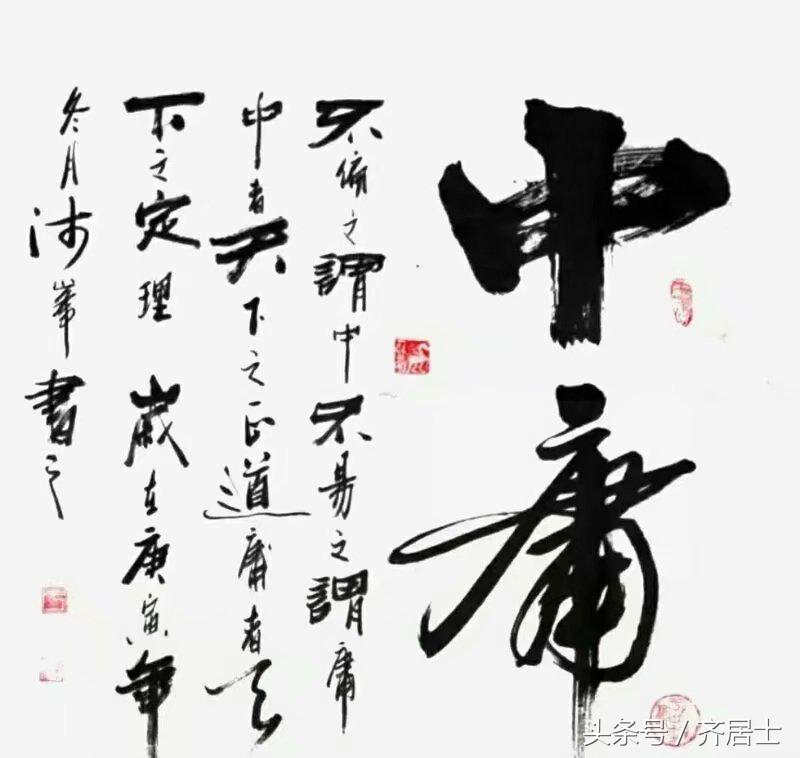 中庸
不偏之謂中不易之謂庸
中者天下之正道庸者天
下之定理 歲在庚寅年
冬月峯書之
头条号 / 齐居士